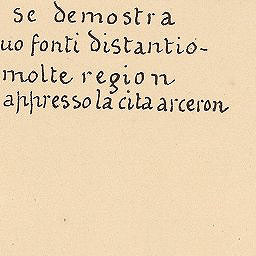 se demostra
uo fonti distantio-
molte region
appresso la cita arceron